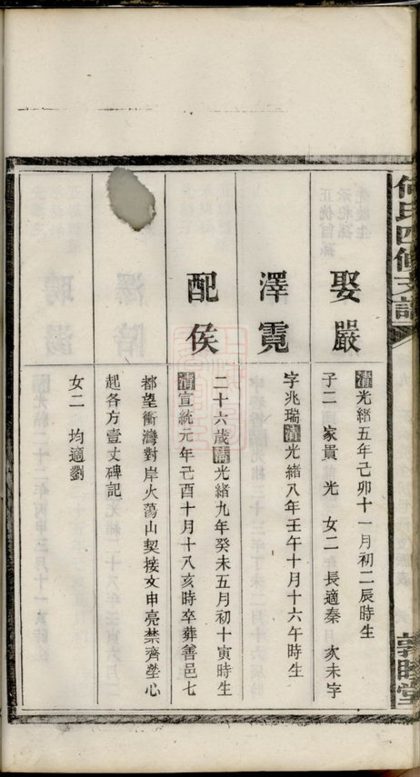 何氏四修支譜
敦睦堂
娶嚴
清光緒五年己卯十一月初二辰時生
子二 家貴 光 女二 長適秦 次未字
澤霓
字兆瑞清光緒八年壬午十月十六午時生
配侯
二十六歲清光緒九年癸未五月初十寅時生
清宣統元年己酉十月十八亥時卒葬善邑七
都望衝灣對岸火蕩山契接文申亮禁濟塋心
起各方壹丈碑記
女二 均適劉